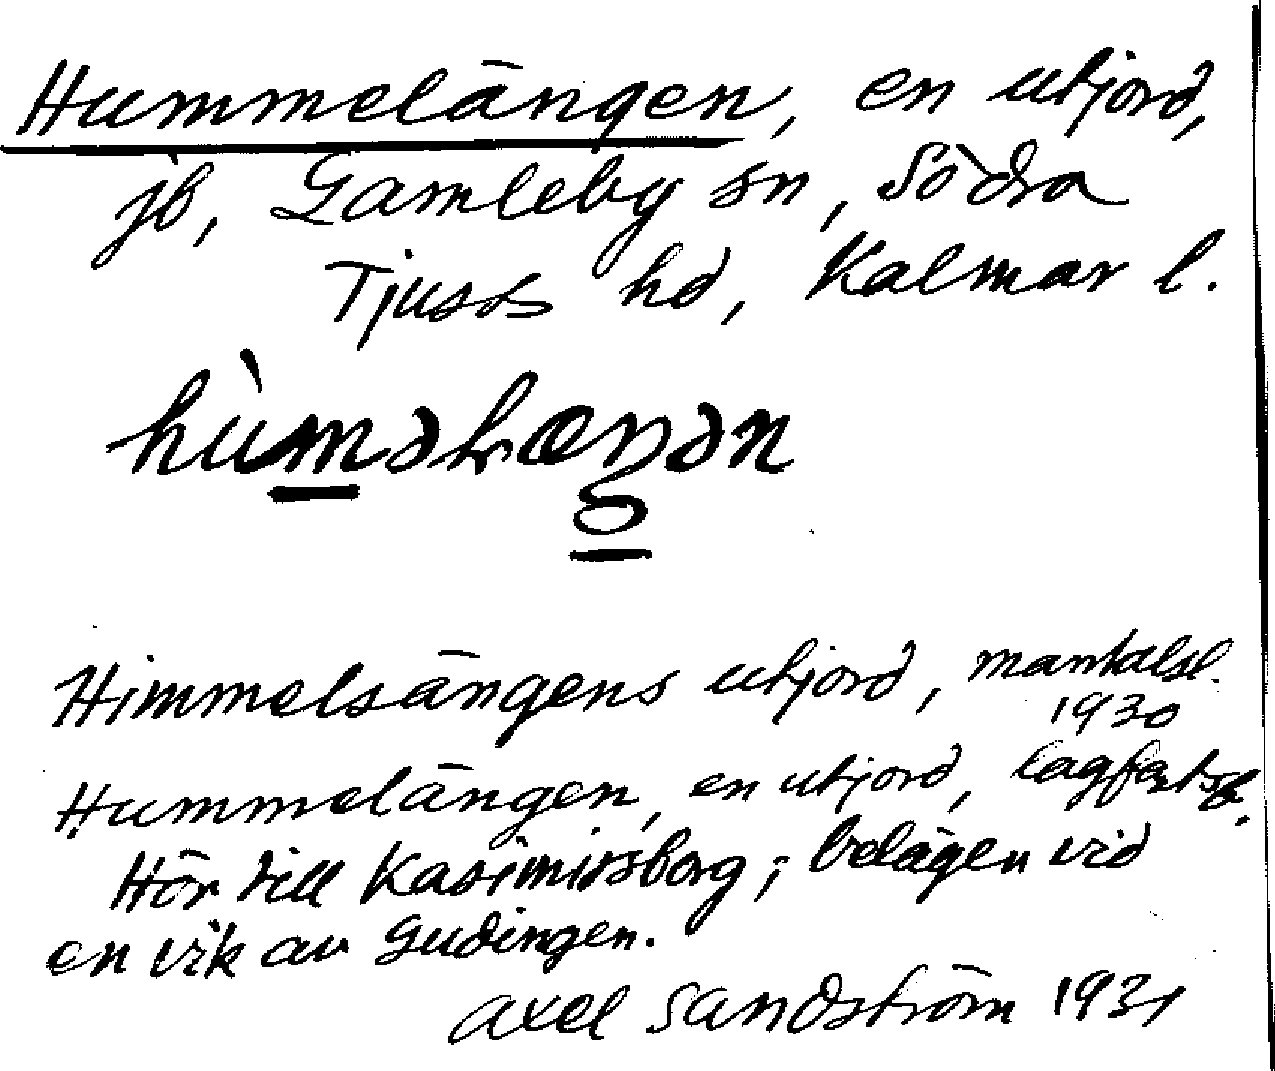 Hummelängen, en utjord,
jb, Gamleby sn, Södra
Tjusts hd, Kalmar l.
Himmelsängens utjord, mantalsl.
1930
Hummelängen, en utjord, lagfartsb.
Hör till Kasimirsborg; belägen vid
en vik av Gudingen.
Axel Sandström 1931